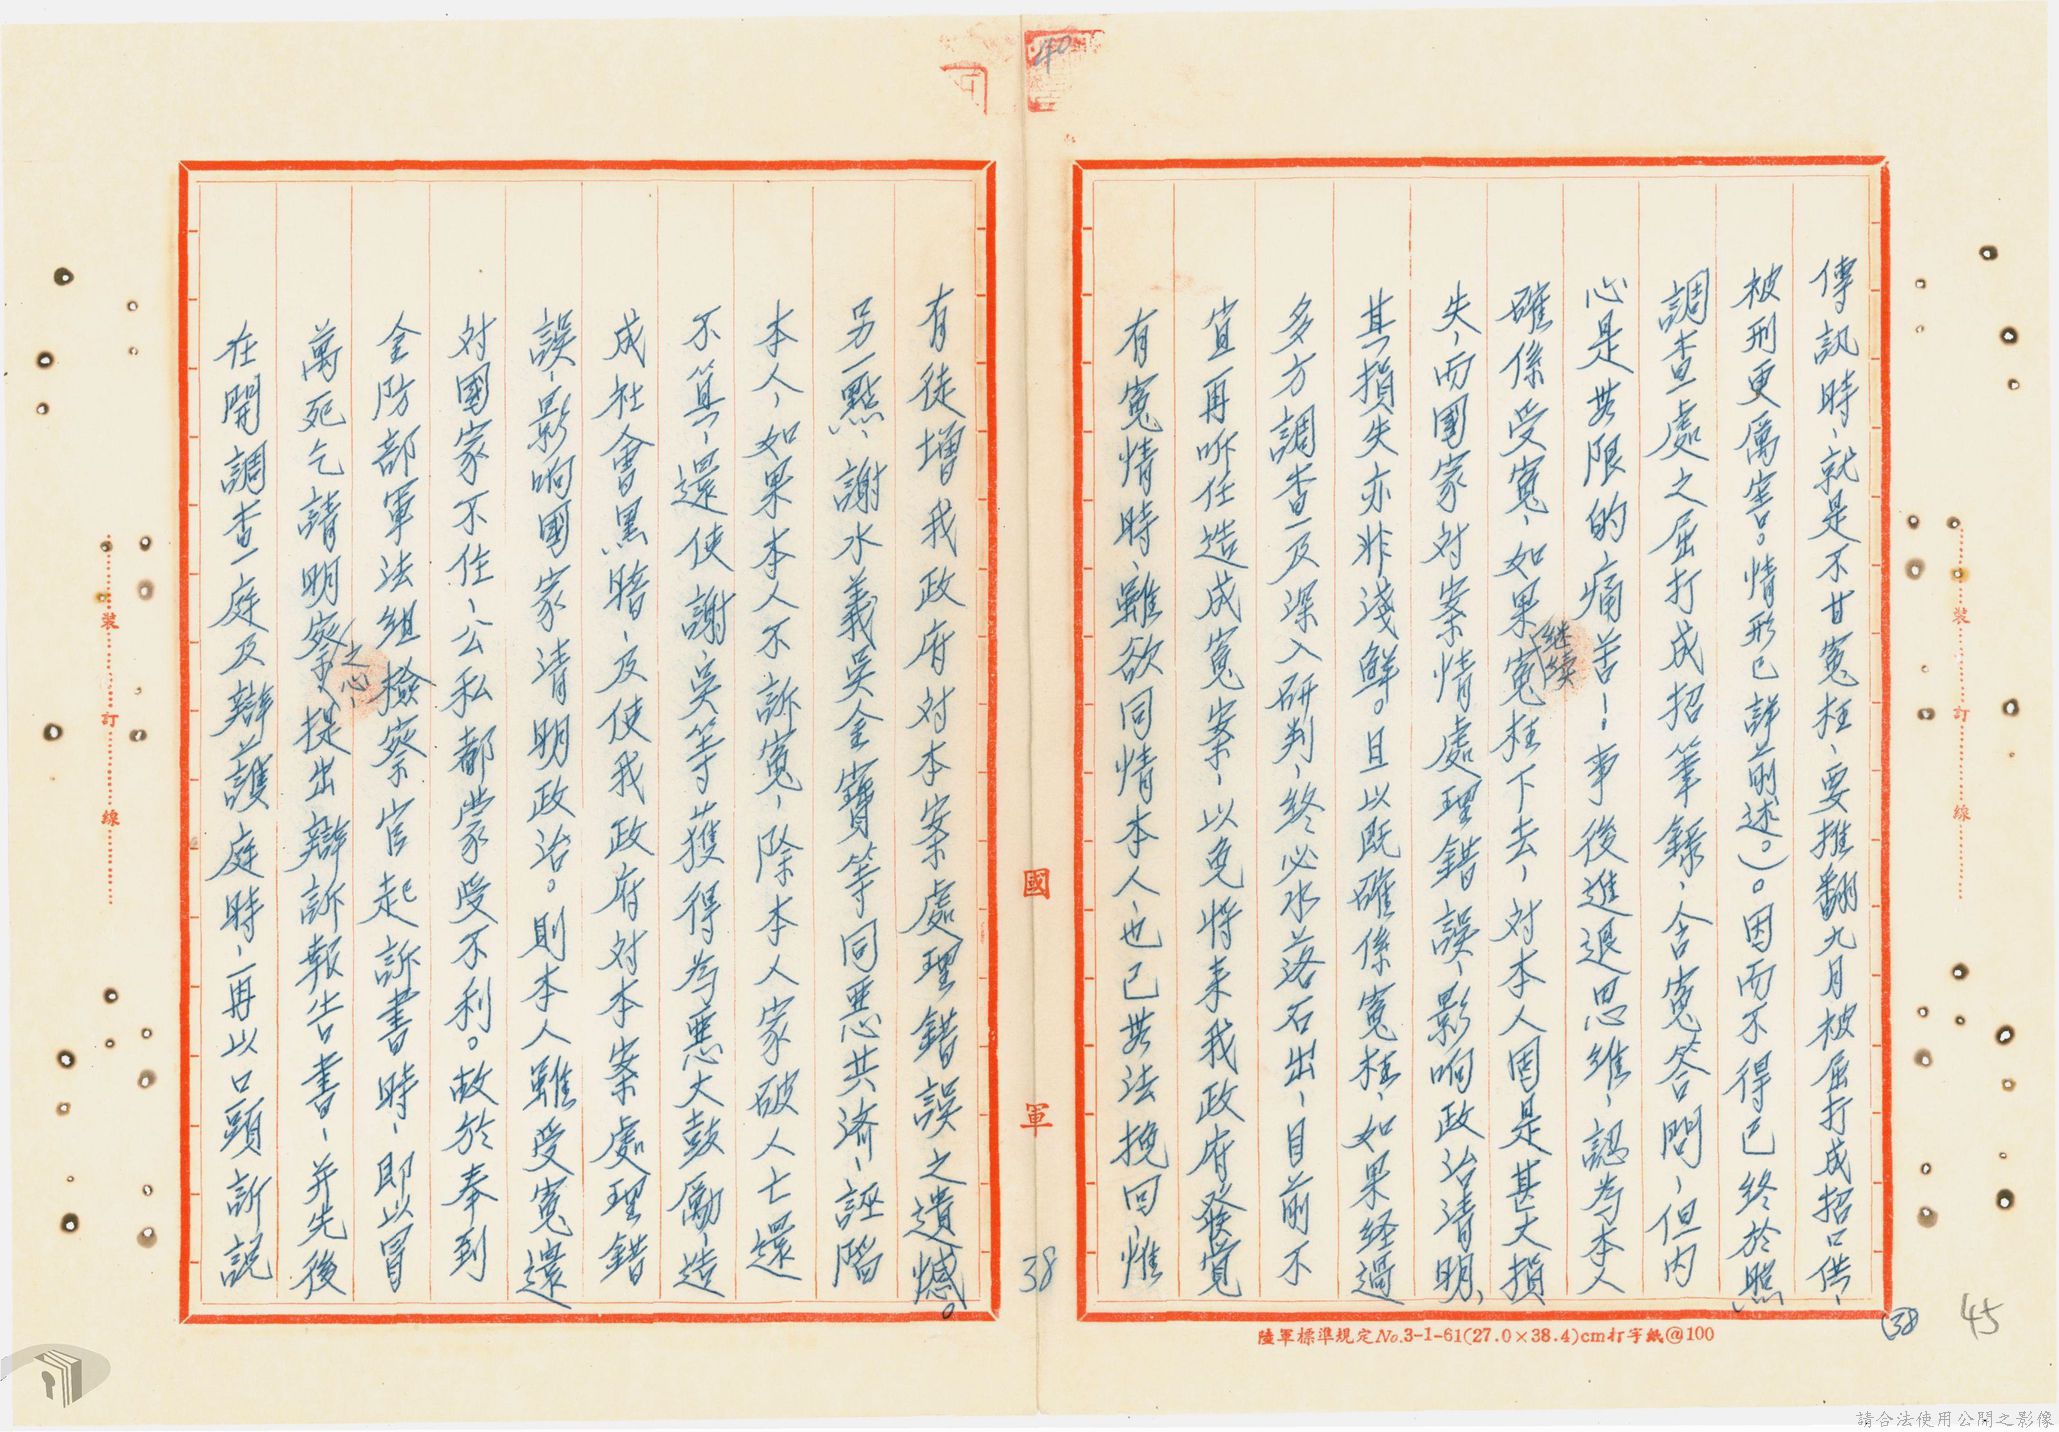 傳訊時、就是不甘冤枉、要推翻九月被屈打成招口供、
被刑更厲害。情形已詳前述。)。因而不得已終於照
調查處之屈打成招筆錄、含冤答問、但内
心是無限的痛苦！事後進退思維、認為本人
確係受冤、如果继续冤枉下去、对本人固是甚大損
失、而國家对案情處理錯誤、影响政治清明、
其損失亦非淺鮮。且以既確係冤枉、如果经過
多方調查及深入研判、終必水落石出、目前不
宜再听任造成冤案、以免将来我政府發覚
有冤情時、雖欲同情本人、也已無法挽回、惟
有徒增我政府对本案處理錯誤之遺憾。
另一點、謝水義吳金寶等同惡共济、誣陷
本人、如果本人不訴冤、除本人家破人亡還
不算、還使謝、吳等獲得為惡大鼓勵、造
成社會黑暗、及使我政府对本案處理錯
誤、影响國家清明政治。則本人雖受冤還
对國家不住、公私都蒙受不利。故於奉到
全防部軍法组檢察官起訴書時、即以冒
萬死乞請明察之心、提出辯訴報告書、并先後
在開調查庭及辯護庭時、再以口頭訴説
40
國軍
38
38
45
裝訂線
裝訂線
陸軍標準規定No.3-1-61(27.0×38.4)cm打字紙@100
請合法使用公開之影像